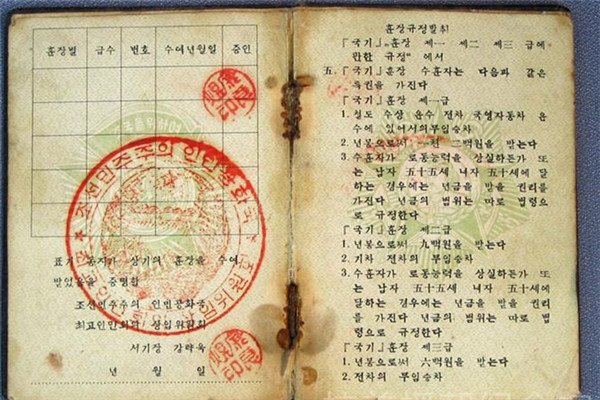 훈장별 급수 번호 수여년월일 증인
표기 동지가 상기의 훈장을 수여
받었음을 증명함
조선민주주의 인민공화국
최고인민회의 상임위원회
서기장 강량욱
년 월 일
조선민주주의인민공화국
훈장규정발취
『국기』훈장 제一 제二 제三 급에
관한 규정" 에서
五. 『국기』훈장 수훈자는 다음과 같은
특권을 가진다
『국기』훈장 제一급
1. 철도 수상 운수 전차 국영자동차 운
수에 있어서의 무임승차
2. 년봉으로써 一천 二백원을 받는다
3. 수훈자가 로동능력을 상실하든가 또
는 남자 五十五세 녀자 五十세에 달
하는 경우에는 년금을 받을 권리를
가진다 년금의 범위는 따로 법령으
로 규정한다
『국기』훈장 제二급
1. 년봉으로써 九백원을 받는다
2. 기차 전차의 무임승차
3. 수훈자가 로동능력을 상실하든가 또
는 남자 五十五세 녀자 五十세에
달하는 경우에는 년금을 받을 권리
를 가진다 년금의 범위는 따로 법
령으로 규정한다
『국기』훈장 제三급
1. 년봉으로써 六백원을 받는다
2. 전차의 무임승차